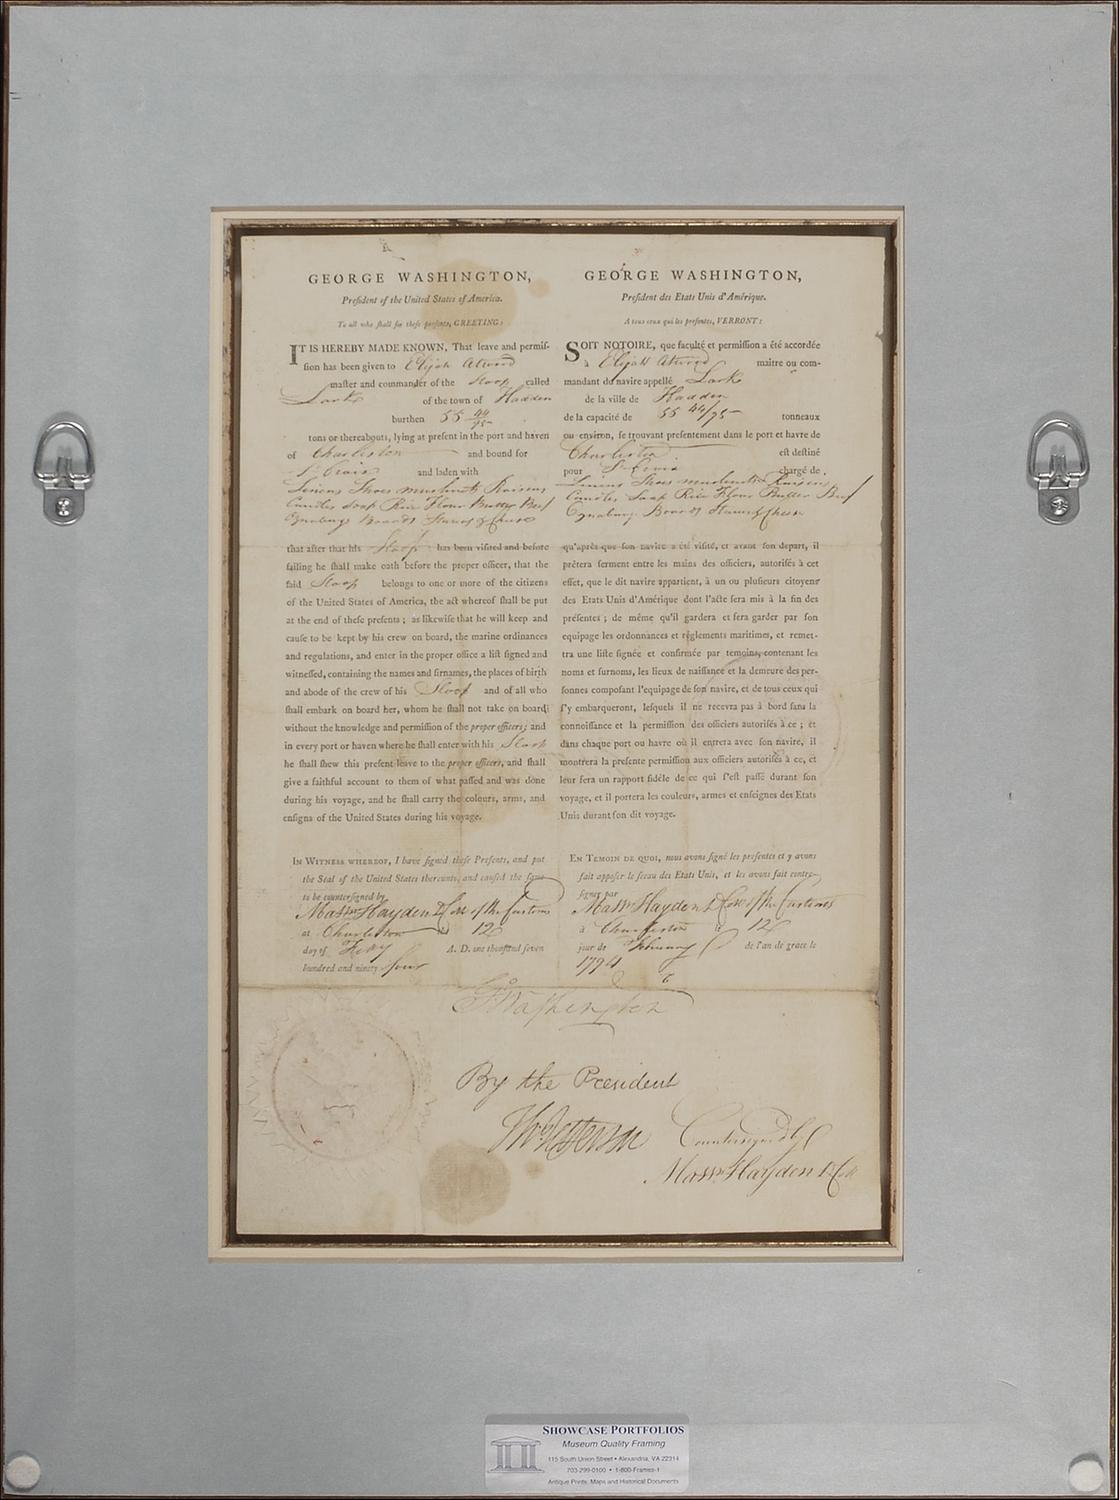 GEORGE WASHINGTON,
President of the United States of America.
To all who shall see these presents, GREETING:
IT IS HEREBY MADE KNOWN, That leave and permis-
sion has been given to Elijah Atwood
master and commander of the Sloop called
Lark of the town of Haddan
burthen 55 44/95
tons or thereabouts, lying at present in the port and haven
of Charleston and bound for
St Croix and laden with
Linens Shoes Raisins
Candles Soap Rice Flour Butter Beef
Oznabrugs Boards Staves & Cheese
that after that his Sloop has been visited and before
sailing he shall make oath before the proper officer, that the
said Sloop belongs to one or more of the citizens
of the United States of America, the act whereof shall be put
at the end of these presents; as likewise that he will keep and
cause to be kept by his crew on board, the marine ordinances
and regulations, and enter in the proper office a list signed and
witnessed, containing the names and sirnames, the places of birth
and abode of the crew of his Sloop and of all who
shall embark on board her, whom he shall not take on board
without the knowledge and permission of the proper officers; and
in every port or haven where he shall enter with his Sloop
he shall shew this present leave to the proper officers, and shall
give a faithful account to them of what passed and was done
during his voyage, and he shall carry the colours, arms, and
ensigns of the United States during his voyage.
IN WITNESS WHEREOF, I have signed these Presents, and put
the Seal of the United States thereunto, and caused the same
to be countersigned by
Massn Hayden D Coll of the Customs
at Charleston 12
day of Feby A. D. one thousand seven
hundred and ninety four
GEORGE WASHINGTON,
President des Etats Unis d'Amérique.
A tous ceux qui les presentes, VERRONT:
SOIT NOTOIRE, que faculté et permission a été accordée
à Elijah Atwood maitre ou com-
mandant du navire appellé Lark
de la ville de Haddan
de la capacité de 55 44/95 tonneaux
ou environ, se trouvant presentement dans le port et havre de
Charleston est destiné
pour St Croix chargé de
Linens Shoes Raisins
Candles Soap Rice Flour Butter Beef
Oznabrug Boards Staves & Cheese
qu'après que son navire a été visité, et avant son depart, il
prêtera serment entre les mains des officiers, autorisés à cet
effet, que le dit navire appartient, à un ou plusieurs citoyens
des Etats Unis d'Amérique dont l'acte sera mis à la fin des
présentes; de même qu'il gardera et fera garder par son
equipage les ordonnances et règlements maritimes, et remet-
tra une liste signée et confirmée par temoins, contenant les
noms et surnoms, les lieux de naissance et la demeure des per-
sonnes composant l'equipage de son navire, et de tous ceux qui
s'y embarqueront, lesquels il ne recevra pas à bord sans la
connoissance et la permission des officiers autorisés à ce; et
dans chaque port ou havre où il entrera avec son navire, il
montrera la presente permission aux officiers autorisés à ce, et
leur fera un rapport fidèle de ce qui s'est passé durant son
voyage, et il portera les couleurs, armes et enseignes des Etats
Unis durant son dit voyage.
EN TEMOIN DE QUOI, nous avons signé les presentes et y avons
fait apposer le sceau des Etats Unis, et les avons fait contre-
signer par
Massn Hayden D Coll of the Customs
à Charleston le 12
jour de February de l'an de grace le
1794
Go Washington
By the President
Th: Jefferson
Countersigned by
Massn Hayden D Coll
SHOWCASE PORTFOLIOS
Museum Quality Framing
115 South Union Street • Alexandria, VA 22314
703-299-0100 • 1-800-Frames-1
Antique Prints, Maps and Historical Documents